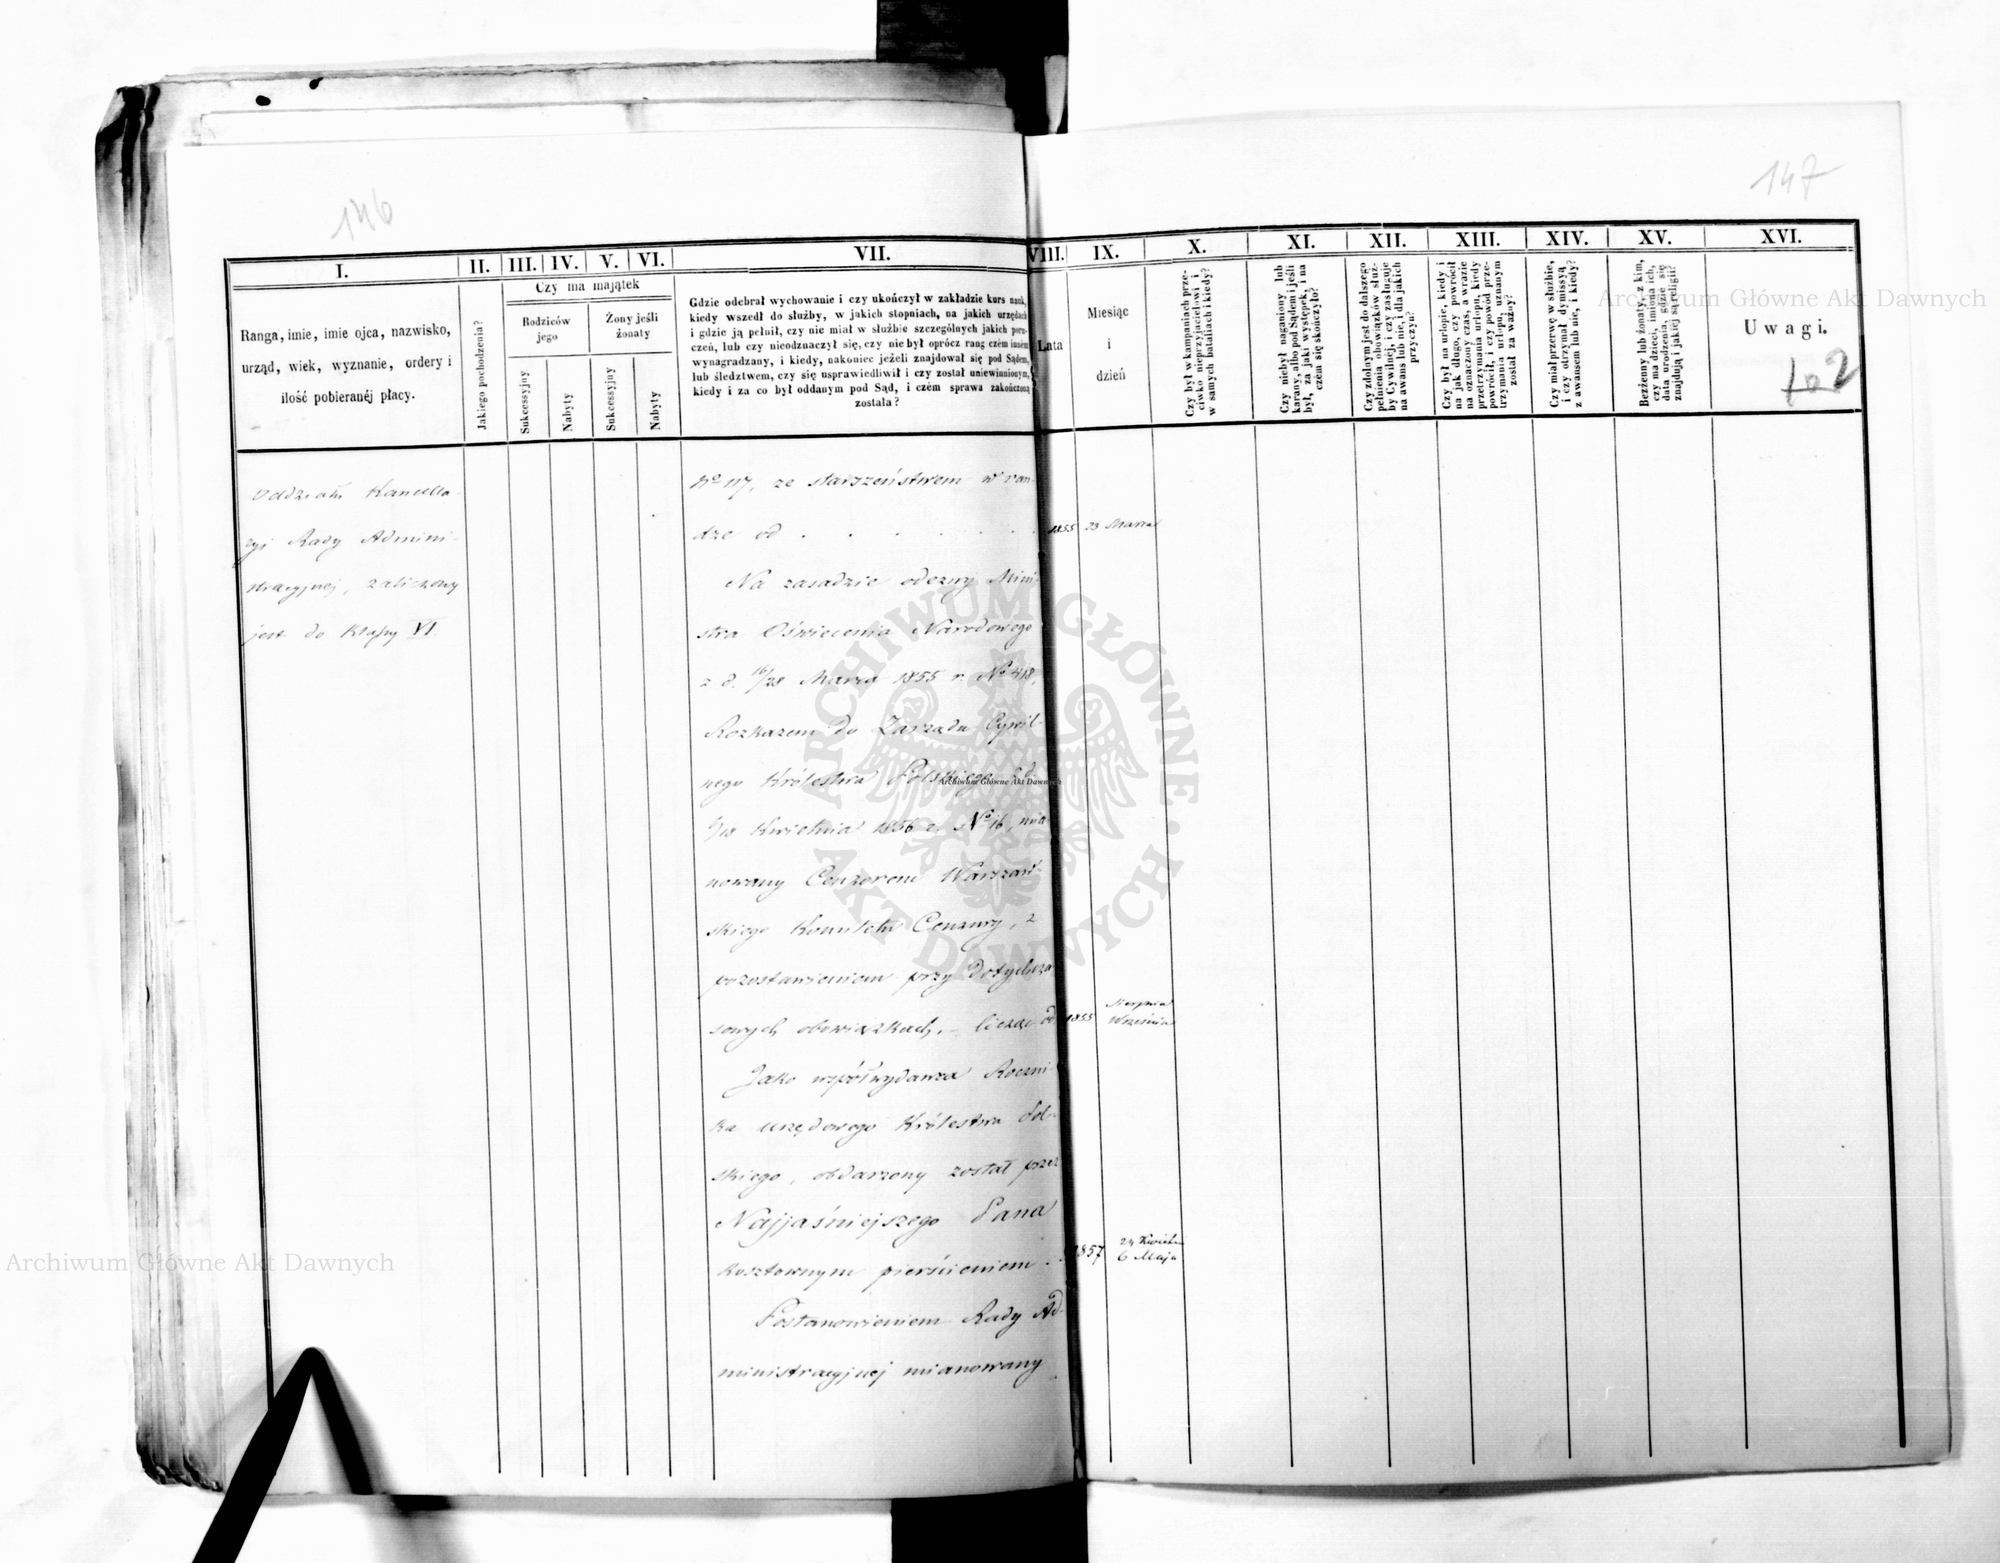 146
147
I.
II.
III.
IV.
V.
VI.
VII.
VIII.
IX.
X.
XI.
XII.
XIII.
XIV.
XV.
XVI.
Ranga, imie, imie ojca, nazwisko,
urząd, wiek, wyznanie, ordery i
ilość pobieranéj płacy.
Jakiego pochodzenia?
Czy ma majątek
Rodziców
jego
Żony jeśli
żonaty
Sukcessyjny
Nabyty
Sukcessyjny
Nabyty
Gdzie odebrał wychowanie i czy ukończył w zakładzie kurs nauk,
kiedy wszedł do służby, w jakich stopniach, na jakich urzędach
i gdzie ją pełnił, czy nie miał w służbie szczególnych jakich poru-
czeń, lub czy nieodznaczył się, czy nie był oprócz rang czém inném
wynagradzany, i kiedy, nakoniec jeżeli znajdował się pod Sądem,
lub śledztwem, czy się usprawiedliwił i czy został uniewinnionym,
kiedy i za co był oddanym pod Sąd, i czém sprawa zakończoną
została?
Lata
Miesiąc
i
dzień
Czy był w kampaniach prze-
ciwko nieprzyjacielowi i
w samych bataliach i kiedy?
Czy niebył naganiony lub
karany, albo pod Sądem i jeśli
był, za jaki występek, i na
czém się skończyło?
Czy zdolnym jest do dalszego
pełnienia obowiązków służ-
by Cywilnéj, i czy zasługuje
na awans lub nie, i dla jakich
przyczyn?
Czy był na urlopie, kiedy i
na jak długo, czy powrócił
na oznaczony czas, a w razie
przetrzymania urlopu, kiedy
powrócił, i czy powód prze-
trzymania urlopu, uznanym
został za ważny?
Czy miał przerwę w służbie,
i czy otrzymał dymissyą
z awansem lub nie, i kiedy?
Bezżenny lub żonaty, z kim,
czy ma dzieci, imiona ich,
data urodzenia, gdzie się
znajdują i jakiéj są religii?
Uwagi.
102
Oddziału Kancella-
ryi Rady Admini-
stracyjnej, zaliczony
jest do Klassy VI.
No 117, ze starszeństwem w ran-
dze od . . . . . . 1855 23 Marca
Na zasadzie odezwy Mini-
stra Oświecenia Narodowego
z d. 16/28 Marca 1855 r. No 418,
Rozkazem do Zarządu Cywil-
nego Królestwa Polskiego
/18 Kwietnia 1856 r. No 16, mia-
nowany Cenzorem Warszaw-
skiego Komitetu Cenzury, z
pozostawieniem przy dotychcza-
sowych obowiązkach, – licząc od 1855 Sierpnia
Września
Jako współwydawca Roczni-
ka urzędowego Królestwa Pol-
skiego, obdarzony został przez
Najjaśniejszego Pana
kosztownym pierścieniem . . 1857 24 Kwietnia
6 Maja
Postanowieniem Rady Ad-
ministracyjnej mianowany
Archiwum Główne Akt Dawnych
Archiwum Główne Akt Dawnych
Archiwum Główne Akt Dawnych
ARCHIWUM GŁÓWNE · AKT DAWNYCH ·